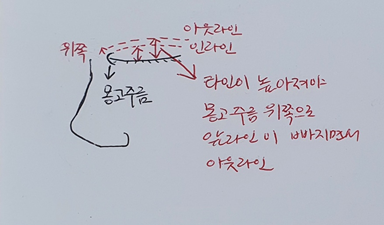 아웃라인
인라인
위쪽
몽고주름
라인이 높아져야
몽고주름 위쪽으로
앞라인이 빠지면서
아웃라인